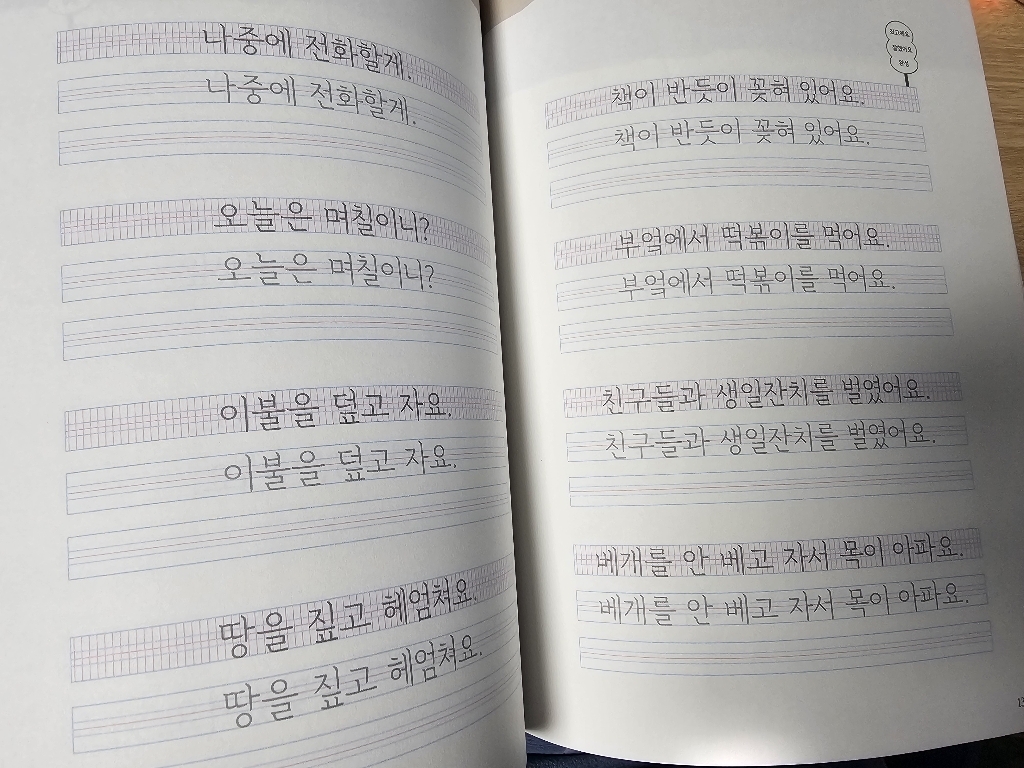 나중에 전화할게.
나중에 전화할게.
오늘은 며칠이니?
오늘은 며칠이니?
이불을 덮고 자요.
이불을 덮고 자요.
땅을 짚고 헤엄쳐요.
땅을 짚고 헤엄쳐요.
책이 반듯이 꽂혀 있어요.
책이 반듯이 꽂혀 있어요.
부엌에서 떡볶이를 먹어요.
부엌에서 떡볶이를 먹어요.
친구들과 생일잔치를 벌였어요.
친구들과 생일잔치를 벌였어요.
베개를 안 베고 자서 목이 아파요.
베개를 안 베고 자서 목이 아파요.